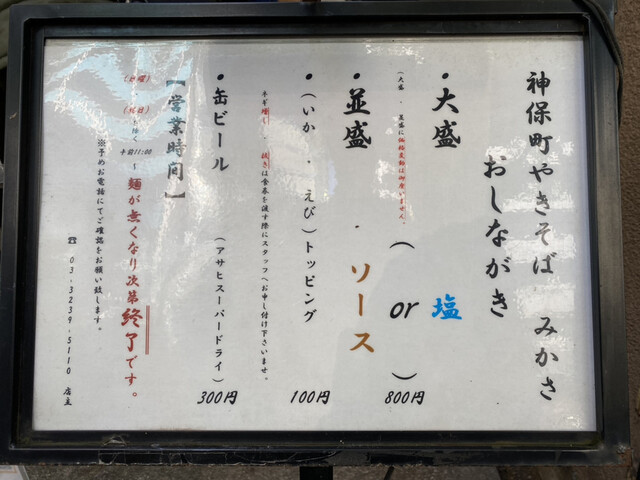 神保町やきそば みかさ
おしながき
・大盛 塩
( or ) 800円
(大盛・並盛に価格変動は御座いません。)
・並盛・ソース
・(いか・えび)トッピング 100円
ネギ増し・抜きは食券を渡す際にスタッフへお申し付け下さいませ。
・缶ビール (アサヒスーパードライ) 300円
【営業時間】
(日曜)・(祝日)を除く
午前11:00〜麺が無くなり次第終了です。
※予めお電話にてご確認をお願い致します。
☎03-3239-5110 店主